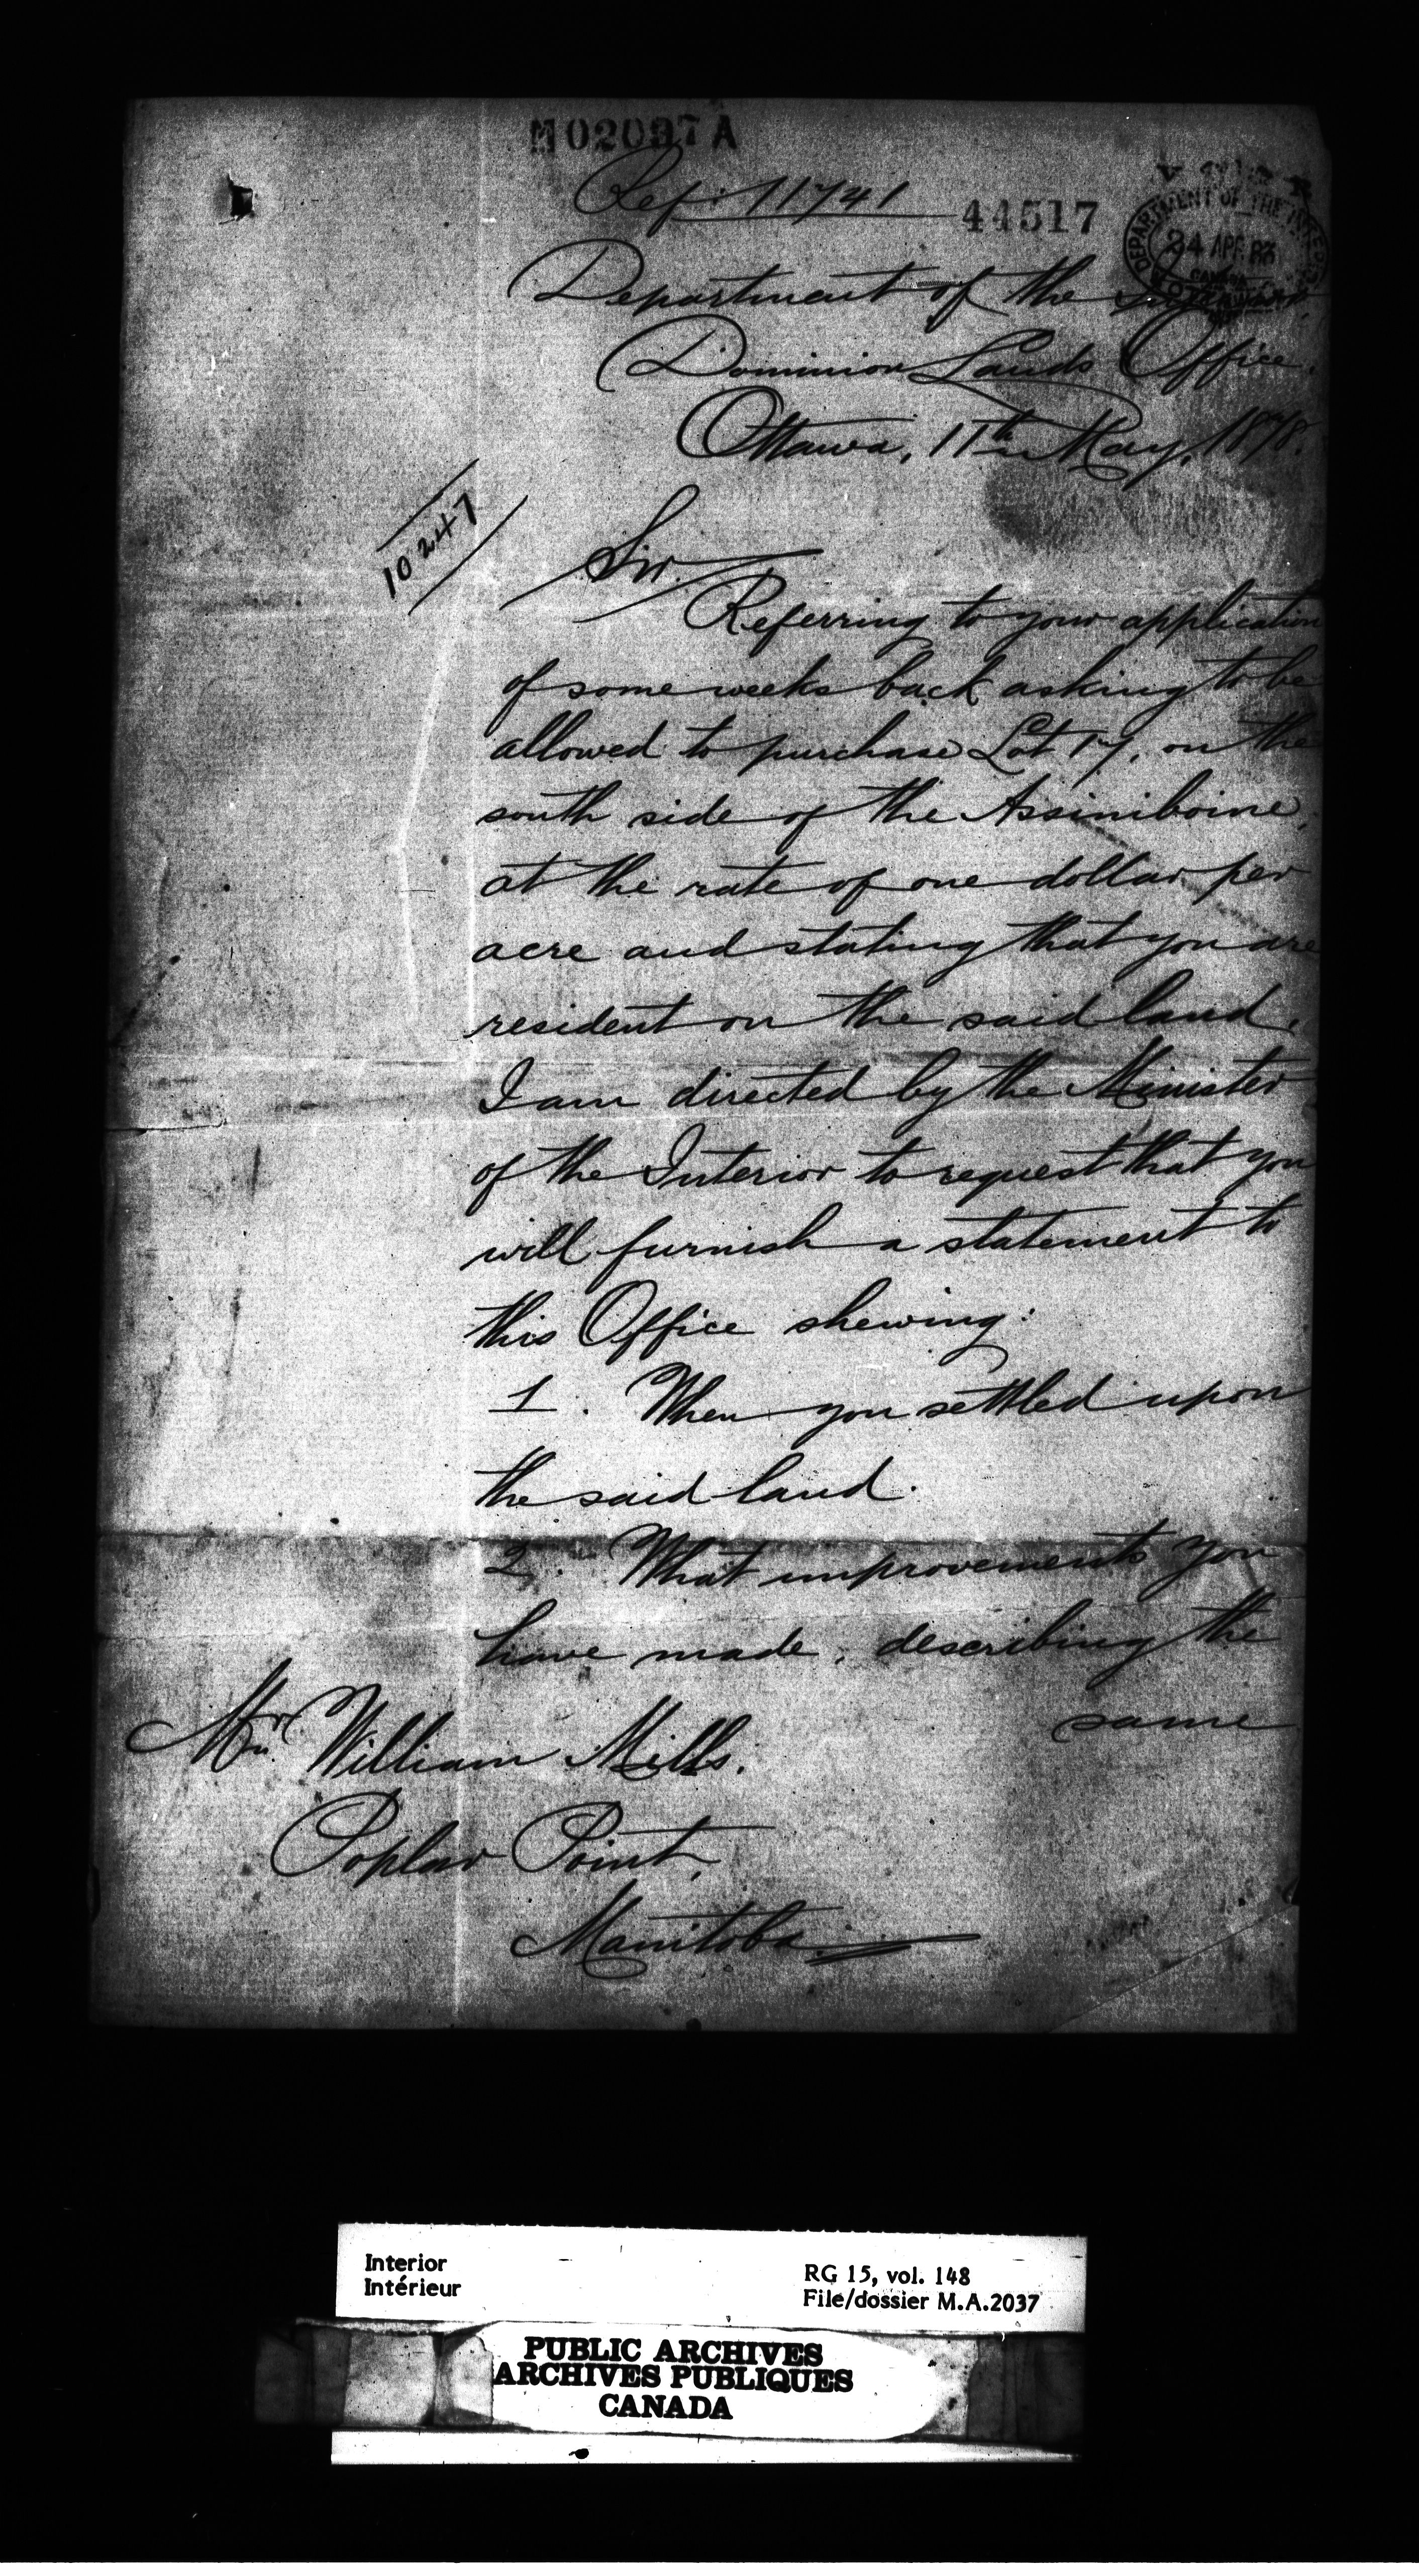 M02037A
Ref. 11741
44517
DEPARTMENT OF THE INTERIOR
24 APR. 83
CANADA
OTTAWA
Department of the
Dominion Lands Office,
Ottawa, 11th May, 1878.
10247
Sir.
Referring to your application
of some weeks back asking to be
allowed to purchase Lot 17, on the
south side of the Assiniboine,
at the rate of one dollar per
acre and stating that you are
resident on the said land,
I am directed by the Minister
of the Interior to request that you
will furnish a statement to
this Office shewing:
1. When you settled upon
the said land.
2. What improvements you
have made, describing the
same
Mr. William Mills.
Poplar Point,
Manitoba.
Interior
Intérieur
RG 15, vol. 148
File/dossier M.A.2037
PUBLIC ARCHIVES
ARCHIVES PUBLIQUES
CANADA